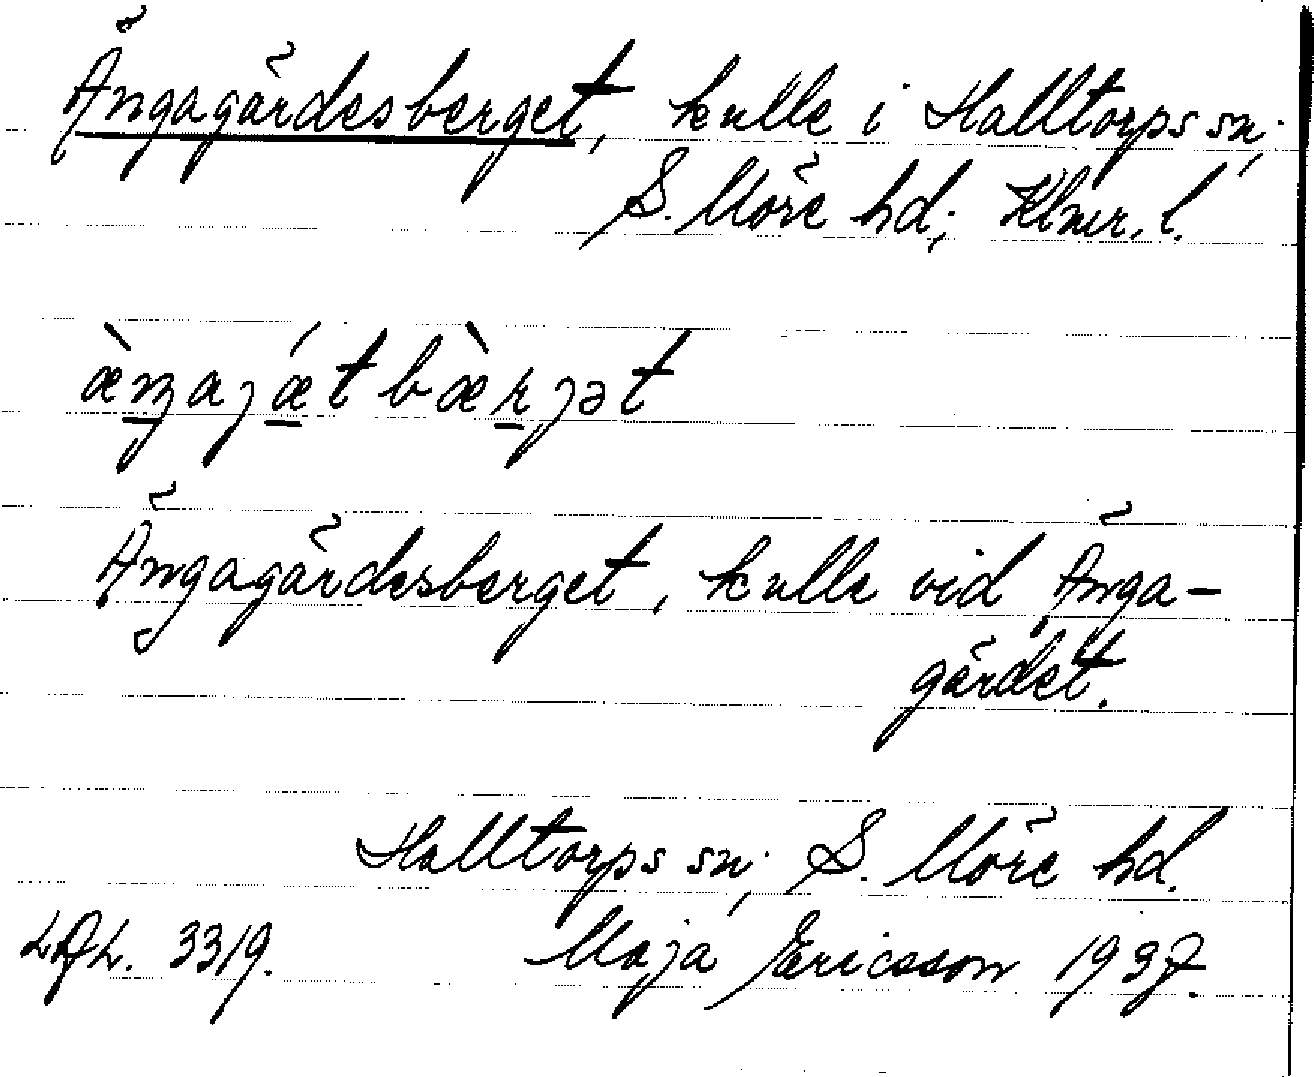 Ängagärdesberget, kulle i Halltorps sn;
S. Möre hd; Klmr. l.
æ̀ŋajǽt bæ̀rjət
Ängagärdesberget, kulle vid Änga-
gärdet.
Halltorps sn; S. Möre hd.
3319. Maja Ericsson 1937.